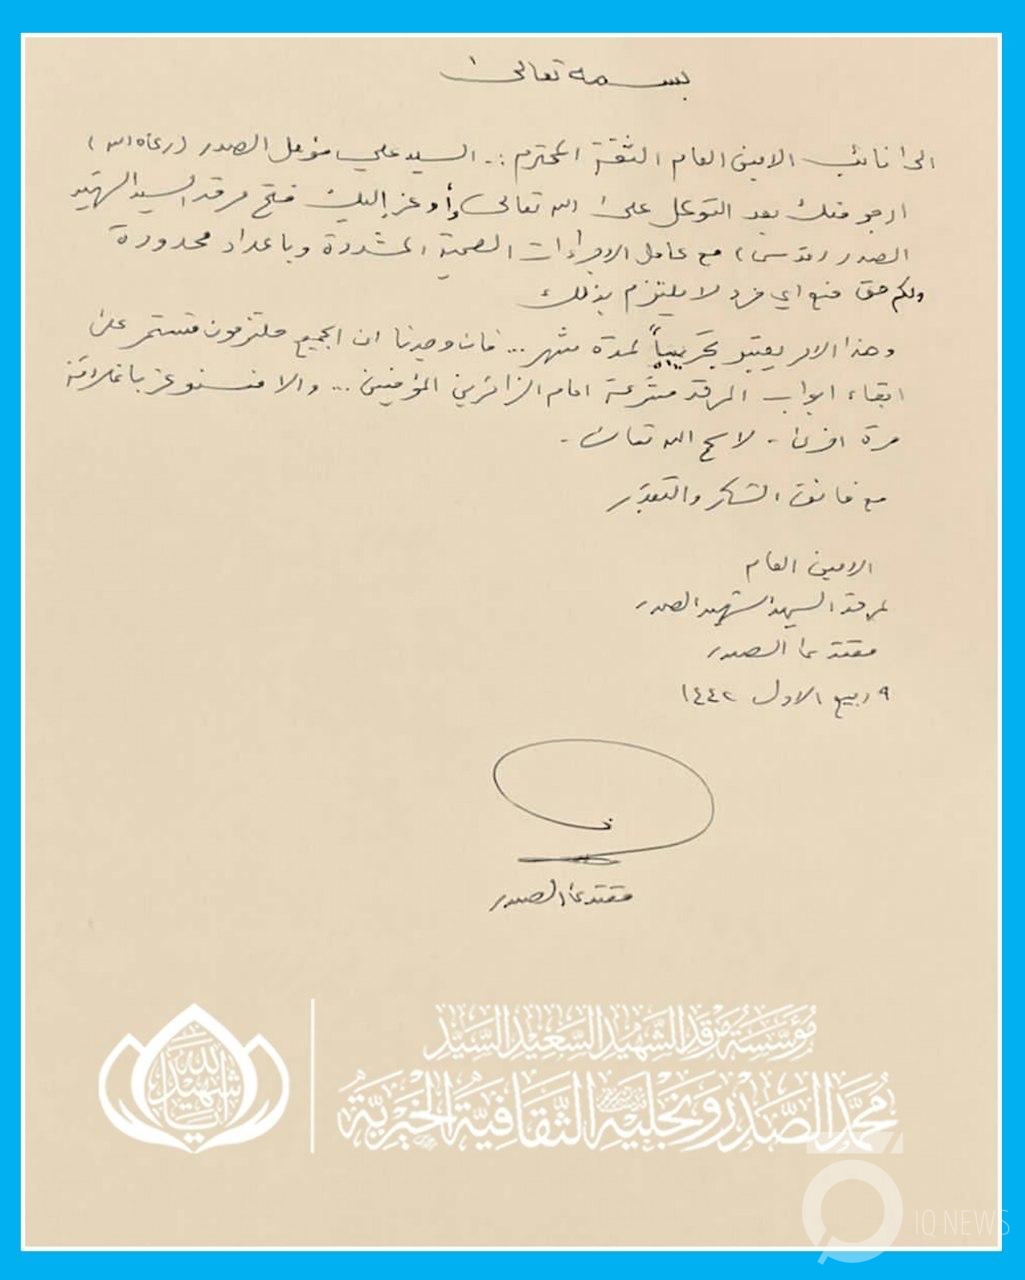 بسمه تعالى
الى نائب الامين العام الثقة المحترم :. السيد علي مؤمل الصدر (رعاه الله)
ارجو منك بعد التوكل على الله تعالى وأوعز إليك فتح مرقد السيد الشهيد
الصدر (قدس) مع كامل الاجراءات الصحية المشددة وباعداد محدودة
ولكم حق منع اي فرد لا يلتزم بذلك
وهذا الامر يعتبر تجريبياً لمدة شهر ... فان وجدنا ان الجميع ملتزمون فنستمر على
ابقاء ابواب المرقد مشرعة امام الزائرين المؤمنين ... والا فسنوعز باغلاقه
مرة اخرى - لا سمح الله تعالى -
مع فائق الشكر والتقدير
الامين العام
لمرقد السيد الشهيد الصدر
مقتدى الصدر
٩ ربيع الاول ١٤٤٢
مقتدى الصدر
مؤسسة مرقد الشهيد السعيد السيد
محمد الصدر ونجليه الثقافية الخيرية
IQ NEWS